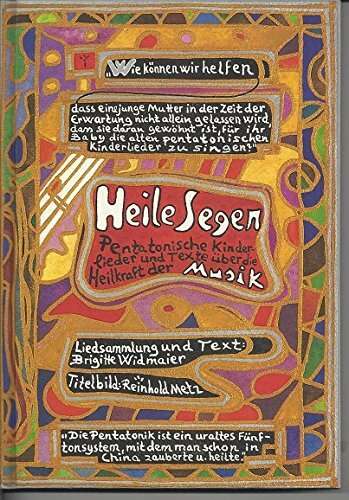 „Wie können wir helfen
dass eine junge Mutter in der Zeit der
Erwartung nicht allein gelassen wird,
dan sie daran gewöhnt ist, für ihr
Baby die alten pentatonischen
Kinderlieder zu singen?"
Heile Segen
Pentatonische Kinder-
lieder und Texte über die
Heilkraft der Musik
Liedsammlung und Text:
Brigitte Widmaier
Titelbild: Reinhold Metz
„Die Pentatonik ist ein uraltes Fünf-
tonsystem, mit dem man schon in
China zauberte u. heilte."